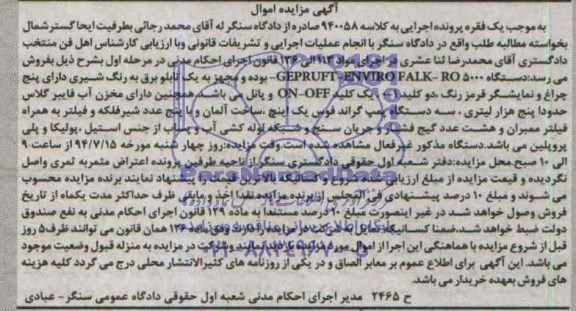 آگهی مزایده اموال
به موجب یک فقره پرونده اجرایی به کلاسه ۹۴۰۰۵۸ صادره از دادگاه سنگر له آقای محمد رجائی بطرفیت ایحا گستر شمال
بخواسته مطالبه طلب واقع در دادگاه سنگر با انجام عملیات اجرایی و تشریفات قانونی وبا ارزیابی کارشناس اهل فن منتخب
دادگستری آقای محمدرضا ثنا عشری و اجرای مواد ۱۱۳ الی قانون اجرای احکام مدنی در مرحله اول بشرح ذیل بفروش
می رسد: دستگاه GEPRUFT-ENVIRO FALK-RO 5000 بوده و مجهز به یک تابلو برق به رنگ شیری دارای پنج
چراغ و نمایشگر قرمز رنگ ،دو کلید یک کلید ON-OFF و پانل می باشد. همچنین دارای مخزن آب فایبر گلاس
حدودا پنج هزار لیتری ، سه دستگاه پمپ گراند فوس یک اینچ ساخت آلمان و با پنج عدد شیر فلکه و فیلتر به همراه
فیلتر ممبران و هشت عدد گیج فشار و جریان سنج و شبکه لوله کشی آب و پساب از جنس استیل ،پولیکا و پلی
پروپلین می باشد.دستگاه مذکور غیر فعال مشاهده شده است.وقت مزایده:روز چهار شنبه مورخه ۹۴/۷/۱۵ از ساعت ۹
الی ۱۰ صبح محل مزایده:دفتر شعبه اول حقوقی دادگستری سنگر.از ناحیه طرفین پرونده اعتراض مثمر به ثمری واصل
نگردیده و قیمت مزایده از مبلغ ارزیابی شده شروع و کسانیکه بالاترین قیمت را پیشنهاد نمایند برنده مزایده محسوب
می شوند و مبلغ ۱۰ درصد پیشنهادی فی المجلس از برنده مزایده نقدا اخذ و مابقی ظرف حداکثر مدت یکماه از تاریخ
فروش وصول خواهد شد.در غیر اینصورت مبلغ ۱۰ درصد مستندا به ماده ۱۲۹ قانون اجرای احکام مدنی به نفع صندوق
دولت ضبط خواهد شد.ضمنا کسانیکه وفق ماده ۱۲۶ همان قانون می توانند ظرف ۵ روز
قبل از شروع مزایده با هماهنگی این اجرا از اموال مورد مزایده بازدید نمایند.وشرکت در مزایده به منزله قبول وضعیت موجود
می باشد. این آگهی برای اطلاع عموم بر معابر الصاق و در یکی از روزنامه های کثیرالانتشار محلی درج می گردد کلیه هزینه
های فروش بعهده خریدار می باشد.
ح ۲۴۶۵ مدیر اجرای احکام مدنی شعبه اول حقوقی دادگاه عمومی سنگر- عبادی